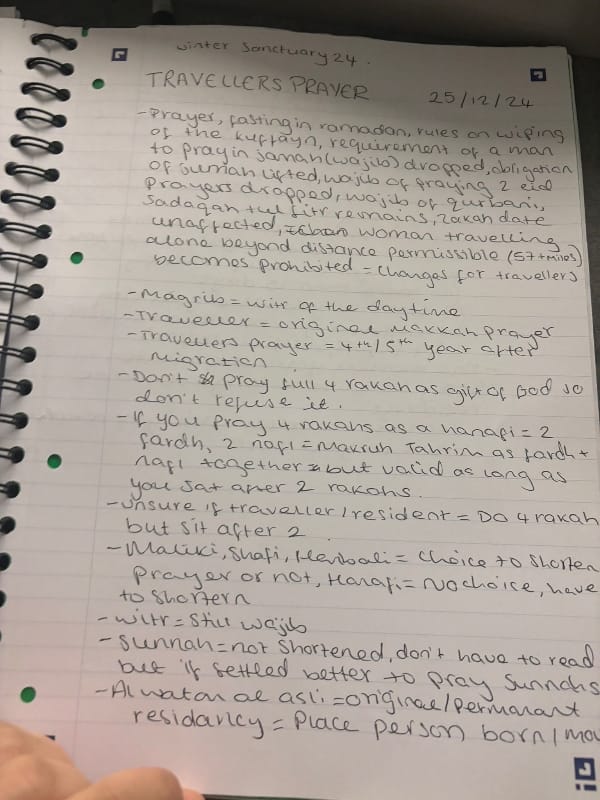 winter Sanctuary 24.
TRAVELLERS PRAYER 25/12/24
- Prayer, fasting in ramadan, rules on wiping
of the kuffayn, requirement of a man
to pray in jamah (wajib) dropped, obligation
of jumah lifted, wajib of praying 2 eid
prayers dropped, wajib of qurbani,
sadaqah tul fitr remains, zakah date
unaffected, woman travelling
alone beyond distance permissible (57+miles)
becomes prohibited = changes for travellers
- Magrib = witr of the daytime
- Traveller = original Makkah prayer
- Travellers prayer = 4th/5th year after
migration
- Don't pray full 4 rakah as gift of God so
don't refuse it.
- If you pray 4 rakahs as a hanafi = 2
fardh, 2 nafl = Makruh Tahrim as fardh +
nafl together = but valid as long as
you sat after 2 rakahs.
- unsure if traveller/resident = DO 4 rakah
but sit after 2
- Maliki, Shafi, Hanbali = choice to shorten
prayer or not, Hanafi = No choice, have
to shortern
- witr = still wajib
- sunnah = not shortened, don't have to read
but if settled better to pray sunnahs
- Al watan al asli = original/permanant
residancy = Place person born/mov